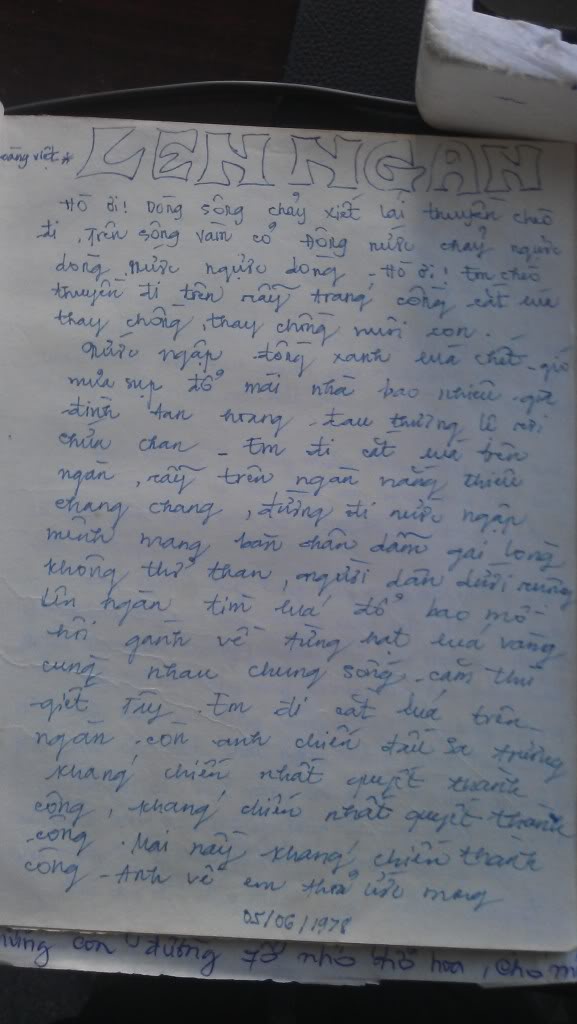 oàng việt * LÊN NGÀN
Hò ơi! Dòng sông chảy xiết lái thuyền chèo
đi, Trên sông vàm cỏ Đông nước chảy ngược
dòng, nước ngược dòng - Hò ơi! Em chèo
thuyền đi trên rẫy trắng công cắt lúa
thay chồng, thay chồng nuôi con.
Nước ngập đồng xanh lúa chết - gió
mưa sụp đổ mái nhà bao nhiêu gia
đình tan hoang - đau thương lệ rơi
chứa chan - Em đi cắt lúa trên
ngàn, rẫy trên ngàn nắng thiêu
chang chang, đường đi nước ngập
mênh mang bàn chân dẫm gai lòng
không thở than, người dân dưới ruộng
lên ngàn tìm lúa đổ bao mồ
hôi gánh về từng hạt lúa vàng
cùng nhau chung sống - căm thù
giết Tây. Em đi cắt lúa trên
ngàn - còn anh chiến đấu sa trường
kháng chiến nhất quyết thành
công, kháng chiến nhất quyết thành
công. Mai này kháng chiến thành
công - Anh về em thoả ước mong
05/06/1978
những con đường nhỏ hoa, cho